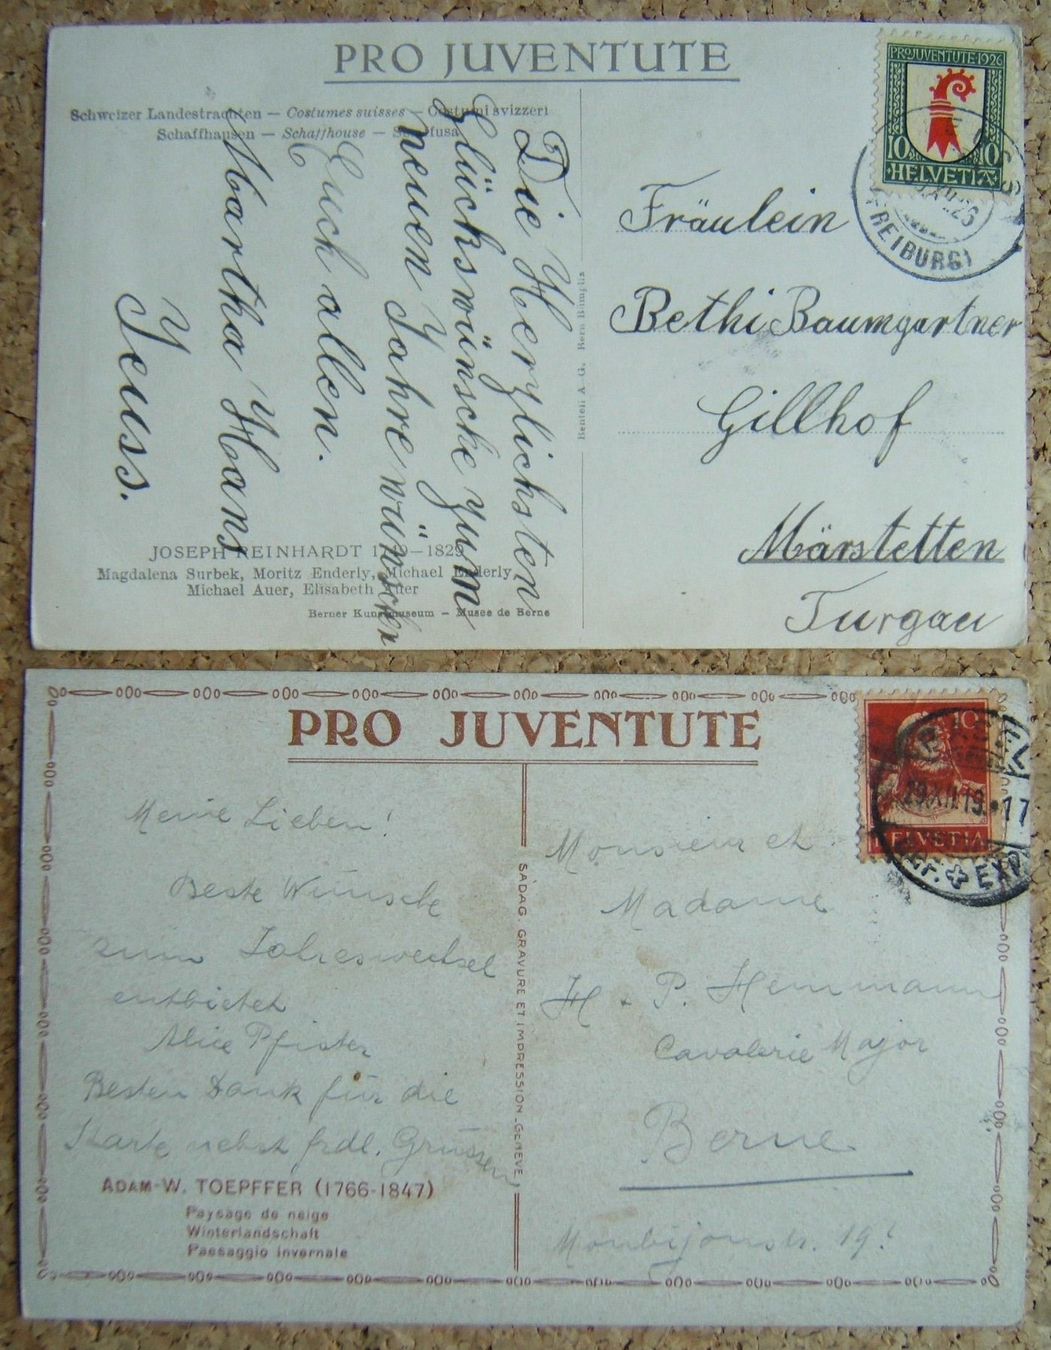 PRO JUVENTUTE
Schweizer Landestrachten — Costumes suisses — Costumi svizzeri
Schaffhausen — Schaffhouse — Sciaffusa
PRO JUVENTUTE 1926
10 10
HELVETIA
XII.26
(FREIBURG)
Die Herzlichsten
Glückswünsche zum
neuen Jahre wünschen
Euch allen.
Martha Hans
Jeuss.
Benteli A. G. Bern Bümpliz
Fräulein
Bethi Baumgartner
Gillhof
Märstetten
Turgau
JOSEPH REINHARDT 1749—1829
Magdalena Surbek, Moritz Enderly, Michael Enderly,
Michael Auer, Elisabeth Auer
Berner Kunstmuseum — Musée de Berne
PRO JUVENTUTE
10
HELVETIA
29.XII.19.17
EXP
Meine Lieben!
Beste Wünsche
zum Jahreswechsel
entbietet
Alice Pfister
Besten Dank für die
Karte nebst frdl. Grüssen
SADAG. GRAVURE ET IMPRESSION. GENÈVE
Monsieur et
Madame
H. P. Hemmann
Cavalerie Major
Berne
Monbijoustr. 19!
ADAM-W. TOEPFFER (1766-1847)
Paysage de neige
Winterlandschaft
Paesaggio invernale